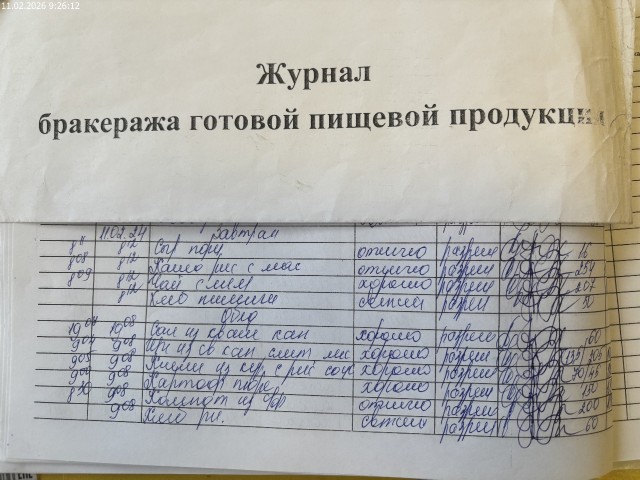 11.02.2026 9:26:12
Журнал
бракеража готовой пищевой продукции
11.02.24 Завтрак
8 11 8 12 Сыр порц отлично разреш 16
8 08 8 12 Каша рис с мас отлично разреш 254
8 09 8 12 Чай с лим хорошо разреш 207
8 12 Хлеб пшенич свежий разреш 50
Обед
10 04 10 08 Сал из кваше кап хорошо разреш 60
9 08 из св кап смет мяс хорошо разреш
9 05 9 08 из кур с рис соус хорошо разреш 90/45
9 08 Картоф пюре хорошо разреш 150
8 50 9 08 Компот из отлично разреш 200
9 08 Хлеб рж. свежий разреш 60